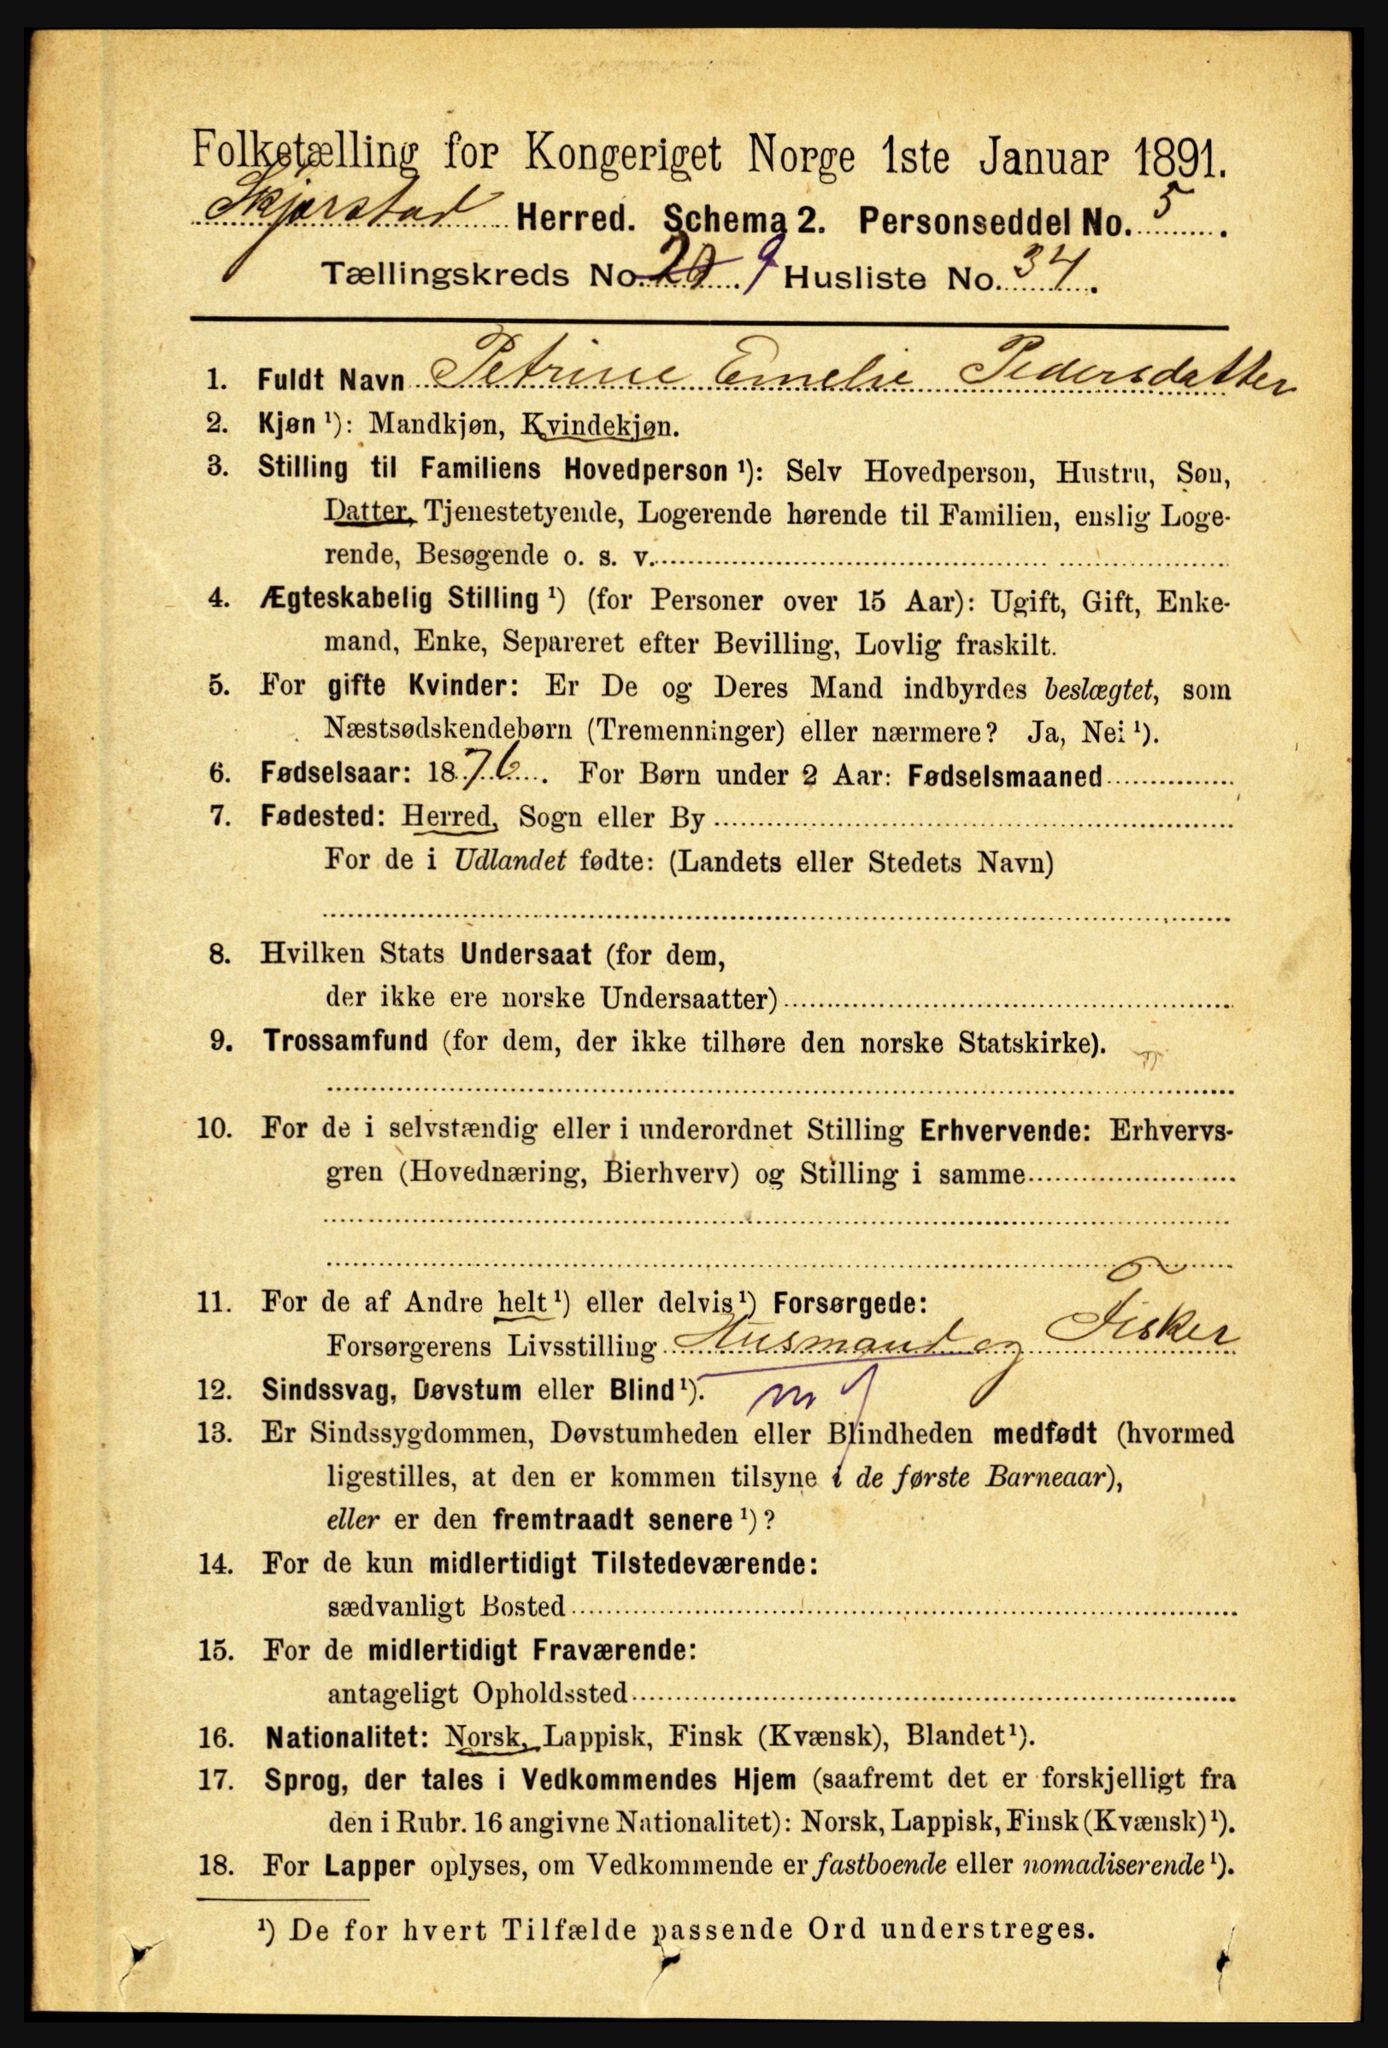 Folketælling for Kongeriget Norge 1ste Januar 1891.
Skjerstad Herred. Schema 2. Personseddel No. 5.
Tællingskreds No. 9 Husliste No. 34.
1. Fuldt Navn Petrine Emelie Pedersdatter
2. Kjøn ¹): Mandkjøn, Kvindekjøn.
3. Stilling til Familiens Hovedperson ¹): Selv Hovedperson, Hustru, Søn,
Datter, Tjenestetyende, Logerende hørende til Familien, enslig Loge-
rende, Besøgende o. s. v.
4. Ægteskabelig Stilling ¹) (for Personer over 15 Aar): Ugift, Gift, Enke-
mand, Enke, Separeret efter Bevilling, Lovlig fraskilt.
5. For gifte Kvinder: Er De og Deres Mand indbyrdes beslægtet, som
Næstsødskendebørn (Tremenninger) eller nærmere? Ja, Nei ¹).
6. Fødselsaar: 1876. For Børn under 2 Aar: Fødselsmaaned
7. Fødested: Herred, Sogn eller By
For de i Udlandet fødte: (Landets eller Stedets Navn)
8. Hvilken Stats Undersaat (for dem,
der ikke ere norske Undersaatter)
9. Trossamfund (for dem, der ikke tilhøre den norske Statskirke).
10. For de i selvstændig eller i underordnet Stilling Erhvervende: Erhvervs-
gren (Hovednæring, Bierhverv) og Stilling i samme
11. For de af Andre helt ¹) eller delvis ¹) Forsørgede:
Forsørgerens Livsstilling Husmand og Fisker
12. Sindssvag, Døvstum eller Blind ¹).
13. Er Sindssygdommen, Døvstumheden eller Blindheden medfødt (hvormed
ligestilles, at den er kommen tilsyne i de første Barneaar),
eller er den fremtraadt senere ¹)?
14. For de kun midlertidigt Tilstedeværende:
sædvanligt Bosted
15. For de midlertidigt Fraværende:
antageligt Opholdssted
16. Nationalitet: Norsk, Lappisk, Finsk (Kvænsk), Blandet ¹).
17. Sprog, der tales i Vedkommendes Hjem (saafremt det er forskjelligt fra
den i Rubr. 16 angivne Nationalitet): Norsk, Lappisk, Finsk (Kvænsk) ¹).
18. For Lapper oplyses, om Vedkommende er fastboende eller nomadiserende ¹).
¹) De for hvert Tilfælde passende Ord understreges.